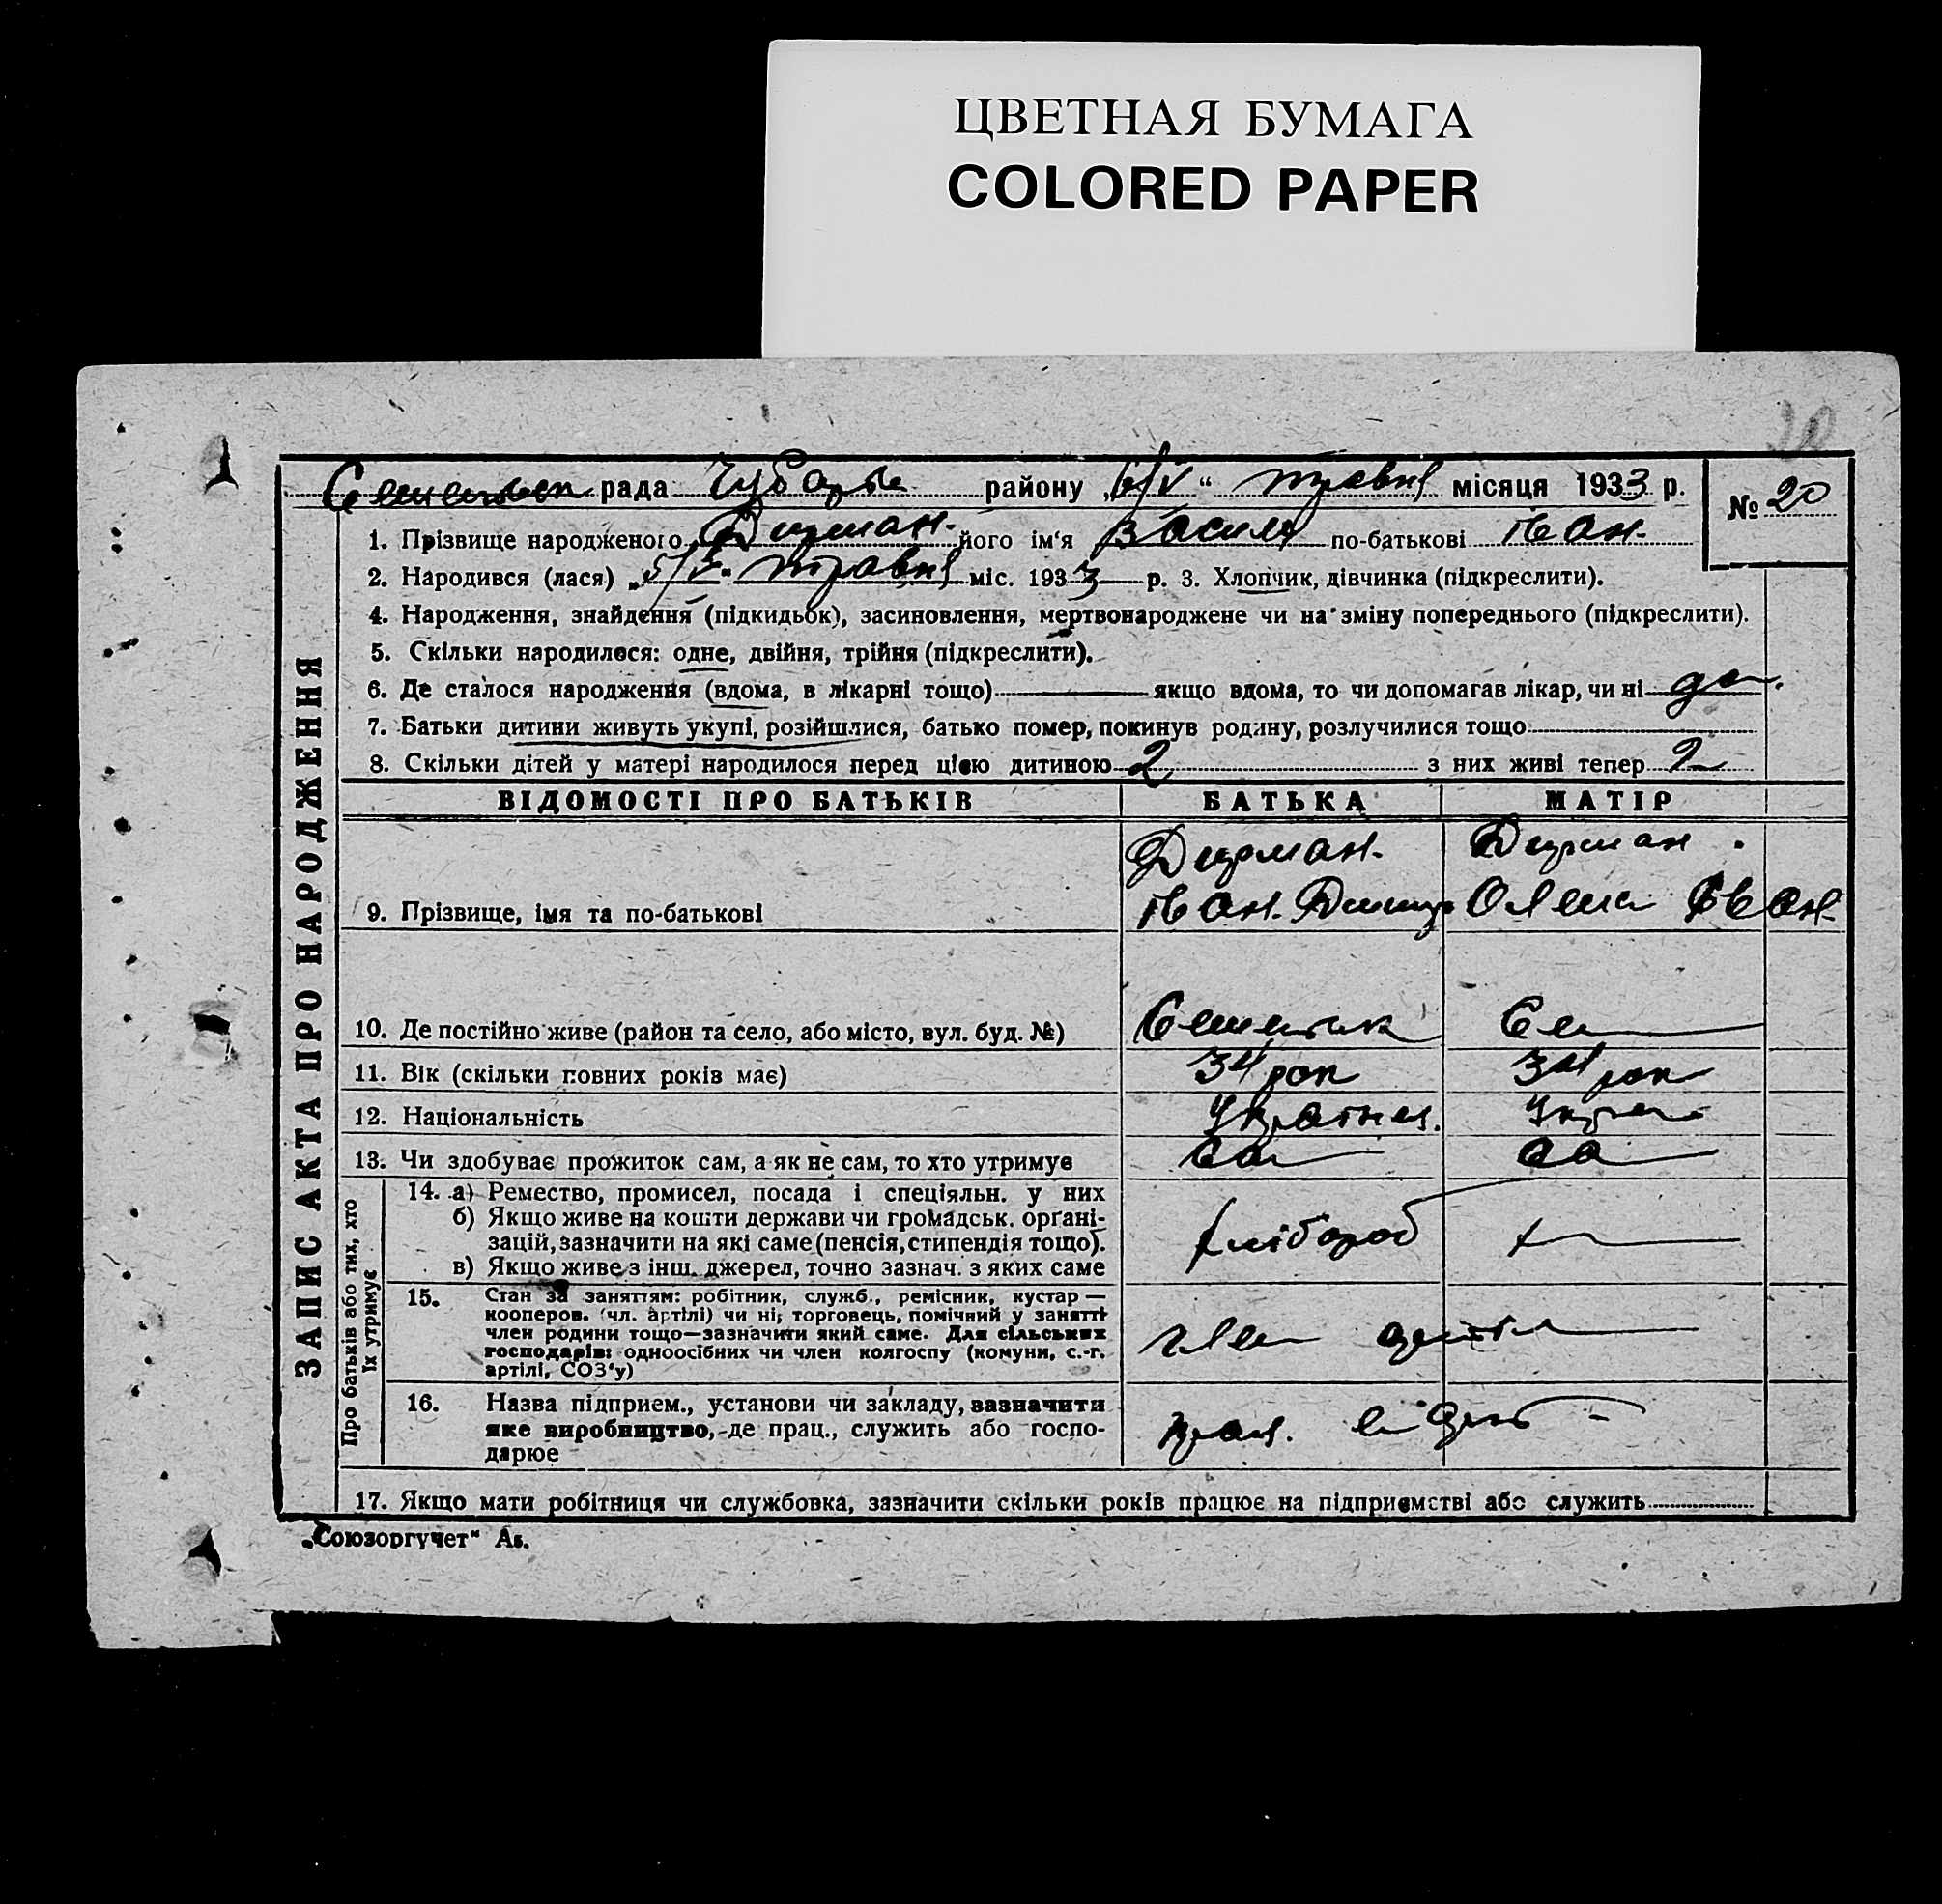 ЦВЕТНАЯ БУМАГА
COLORED PAPER
20
рада Чубарів району „6/V“ травня місяця 1933 р.
№ 20
ЗАПИС АКТА ПРО НАРОДЖЕННЯ
1. Прізвище народженого Дирман. його ім‘я Василь по-батькові Іван.
2. Народився (лася) „5/V“ травня міс. 1933 р. 3. Хлопчик, дівчинка (підкреслити).
4. Народження, знайдення (підкидьок), засиновлення, мертвонароджене чи на зміну попереднього (підкреслити).
5. Скільки народилося: одне, двійня, трійня (підкреслити).
6. Де сталося народження (вдома, в лікарні тощо) якщо вдома, то чи допомагав лікар, чи ні да.
7. Батьки дитини живуть укупі, розійшлися, батько помер, покинув родину, розлучилися тощо
8. Скільки дітей у матері народилося перед цією дитиною 2 з них живі тепер 2
ВІДОМОСТІ ПРО БАТЬКІВ БАТЬКА МАТІР
Дирман. Дирман.
9. Прізвище, імя та по-батькові Іван. Дмитр Олена Іван.
10. Де постійно живе (район та село, або місто, вул. буд. №)
11. Вік (скільки повних років має) 34 рок 34 рок
12. Національність Українец. Укра
13. Чи здобуває прожиток сам, а як не сам, то хто утримує Сам са
Про батьків або тих, хто
їх утримує
14. а) Ремество, промисел, посада і спеціяльн. у них
б) Якщо живе на кошти держави чи громадськ. органі-
зацій, зазначити на які саме (пенсія, стипендія тощо).
в) Якщо живе з інш. джерел, точно зазнач. з яких саме
хлібороб
15. Стан за заняттям: робітник, служб., ремісник, кустар —
кооперов. (чл. артілі) чи ні; торговець, помічний у занятті
член родини тощо—зазначити який саме. Для сільських
господарів: одноосібних чи член колгоспу (комуни, с.-г.
артілі, СОЗ‘у)
член артілі
16. Назва підприєм., установи чи закладу, зазначити
яке виробництво, де прац., служить або госпо-
дарює
прац. в
17. Якщо мати робітниця чи службовка, зазначити скільки років працює на підприємстві або служить
„Союзоргучет“